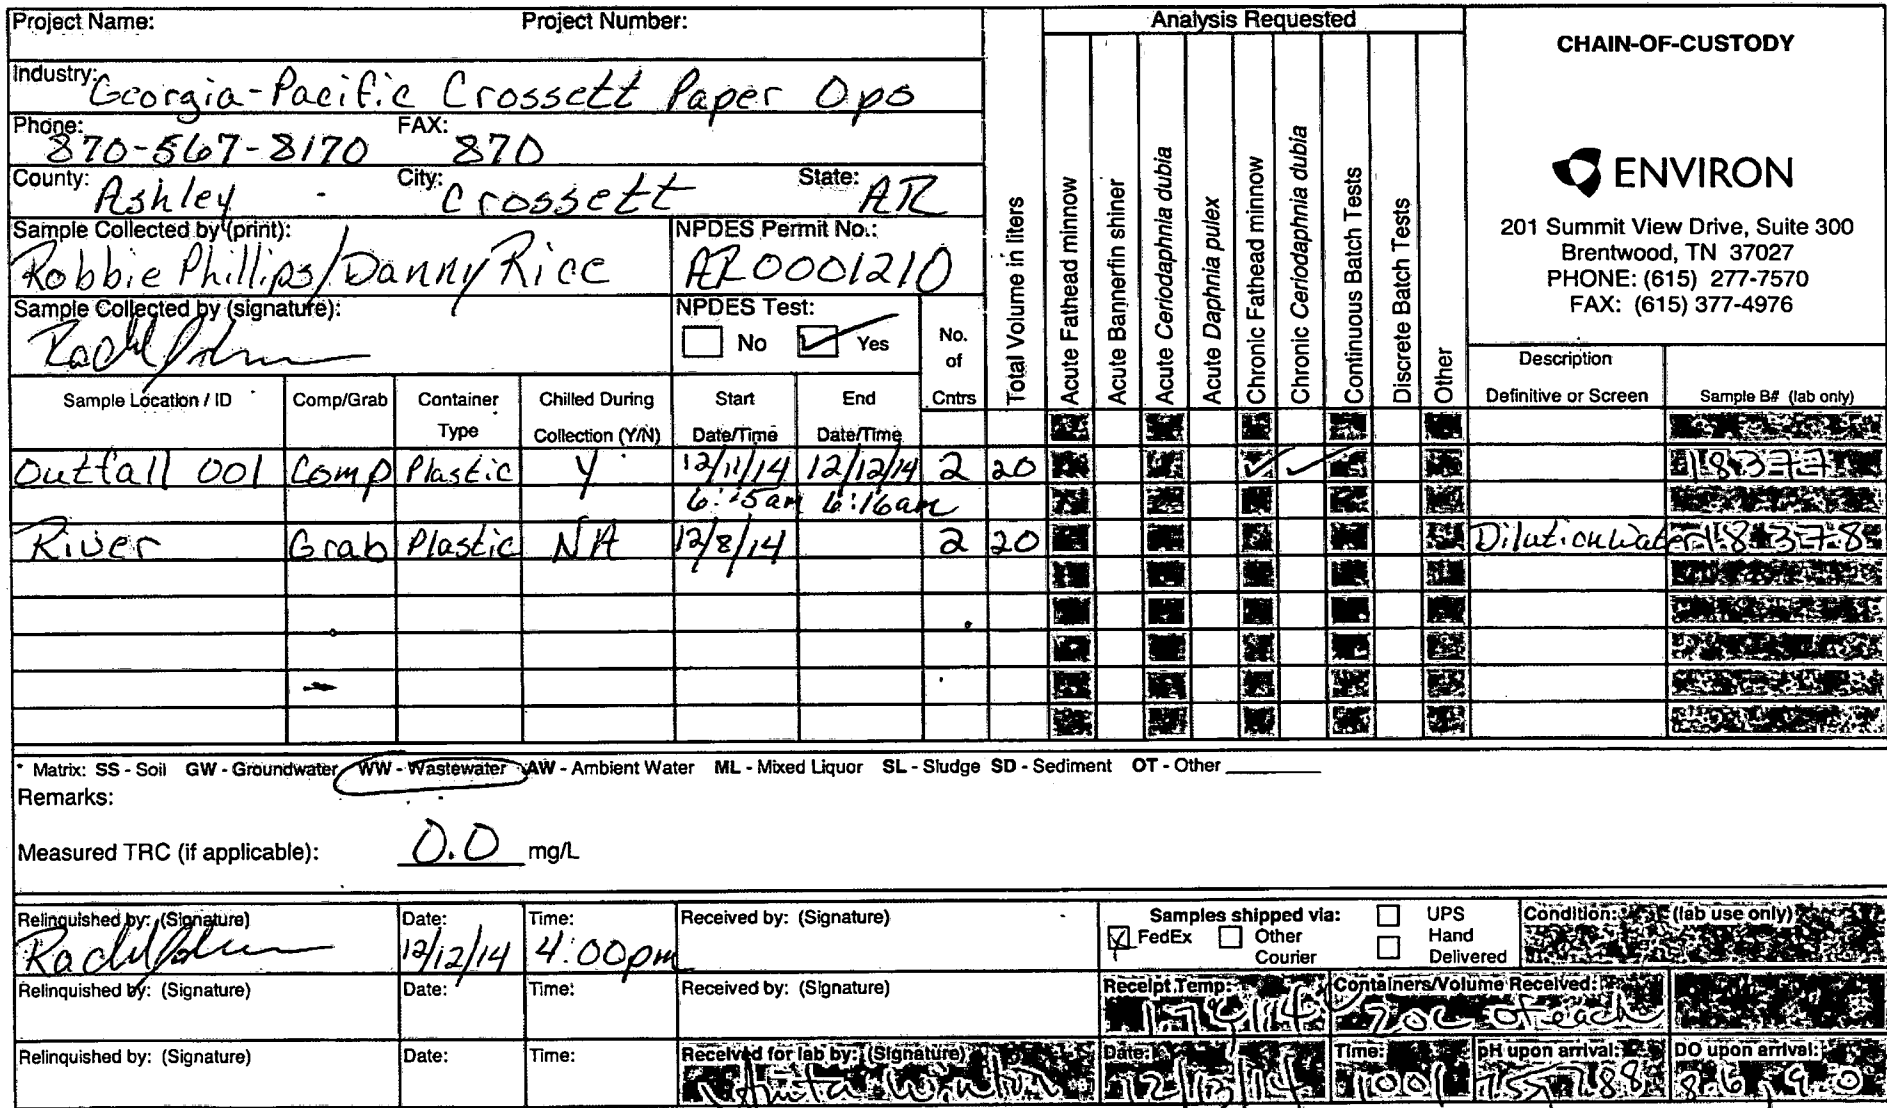 Project Name: Project Number:
Analysis Requested
CHAIN-OF-CUSTODY
Industry: Georgia-Pacific Crossett Paper Ops
Phone: 870-567-8170 FAX: 870
County: Ashley City: Crossett State: AR
Sample Collected by (print): Robbie Phillips/Danny Rice
NPDES Permit No.: AR0001210
Sample Collected by (signature):
NPDES Test: No Yes
ENVIRON
201 Summit View Drive, Suite 300
Brentwood, TN 37027
PHONE: (615) 277-7570
FAX: (615) 377-4976
Sample Location / ID
Comp/Grab
Container Type
Chilled During Collection (Y/N)
Start Date/Time
End Date/Time
No. of Cntrs
Total Volume in liters
Acute Fathead minnow
Acute Bannerfin shiner
Acute Ceriodaphnia dubia
Acute Daphnia pulex
Chronic Fathead minnow
Chronic Ceriodaphnia dubia
Continuous Batch Tests
Discrete Batch Tests
Other
Description
Definitive or Screen
Sample B# (lab only)
Outfall 001 Comp Plastic Y 12/11/14 12/12/14 2 20 18377
6:16am
River Grab Plastic NA 12/8/14 2 20 Dilution Water 18378
* Matrix: SS - Soil GW - Groundwater WW - Wastewater AW - Ambient Water ML - Mixed Liquor SL - Sludge SD - Sediment OT - Other
Remarks:
Measured TRC (if applicable): 0.0 mg/L
Relinquished by: (Signature) Date: 12/12/14 Time: 4:00pm Received by: (Signature)
Samples shipped via: UPS
FedEx Other Courier Hand Delivered
Condition: (lab use only)
Relinquished by: (Signature) Date: Time: Received by: (Signature)
Receipt Temp: Containers/Volume Received: of each
Relinquished by: (Signature) Date: Time: Received for lab by: (Signature)
Date: 12/13/14 Time: 1001 pH upon arrival: 7.88 DO upon arrival: 8.6 9.0